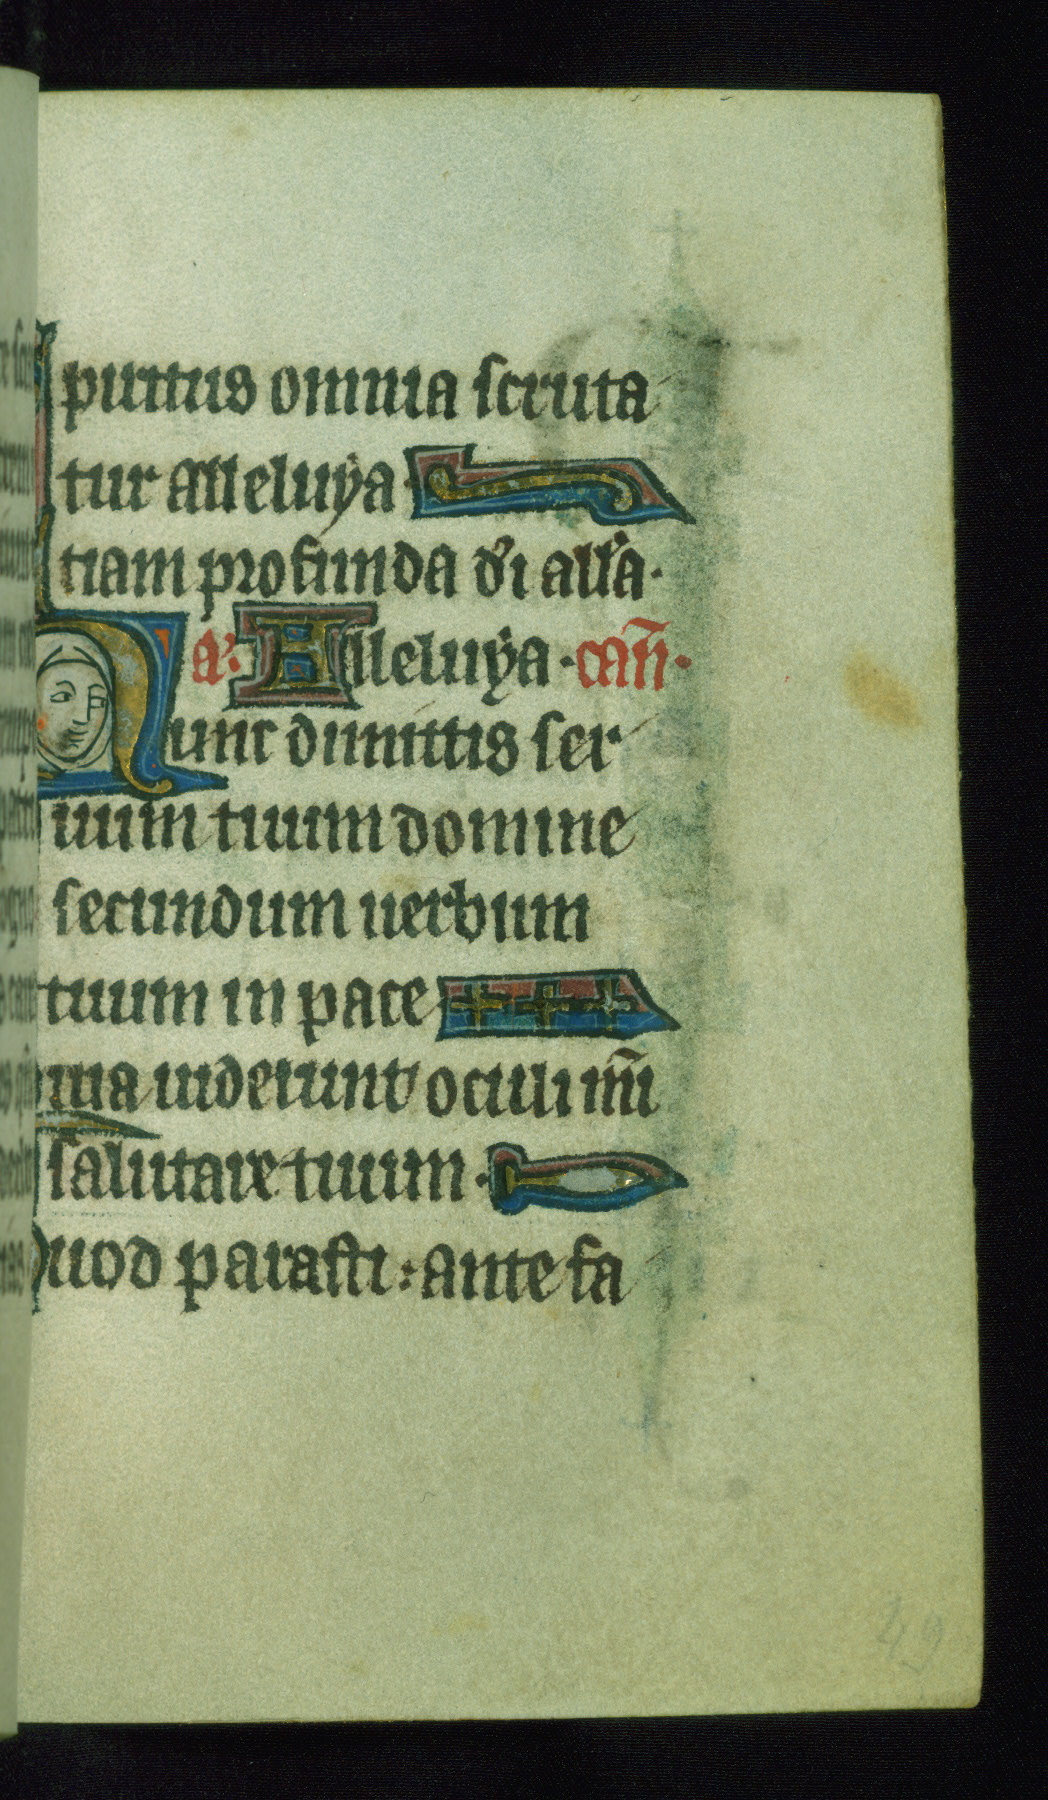 Spiritus omnia scruta
tur alleluya
tiam profunda dī all'a·
a· Alleluya · cañ·
Nunc dimittis ser
uum tuum domine
secundum uerbum
tuum in pace
uia uiderunt oculi m̅i
salutare tuum·
Quod parasti : ante fa
49